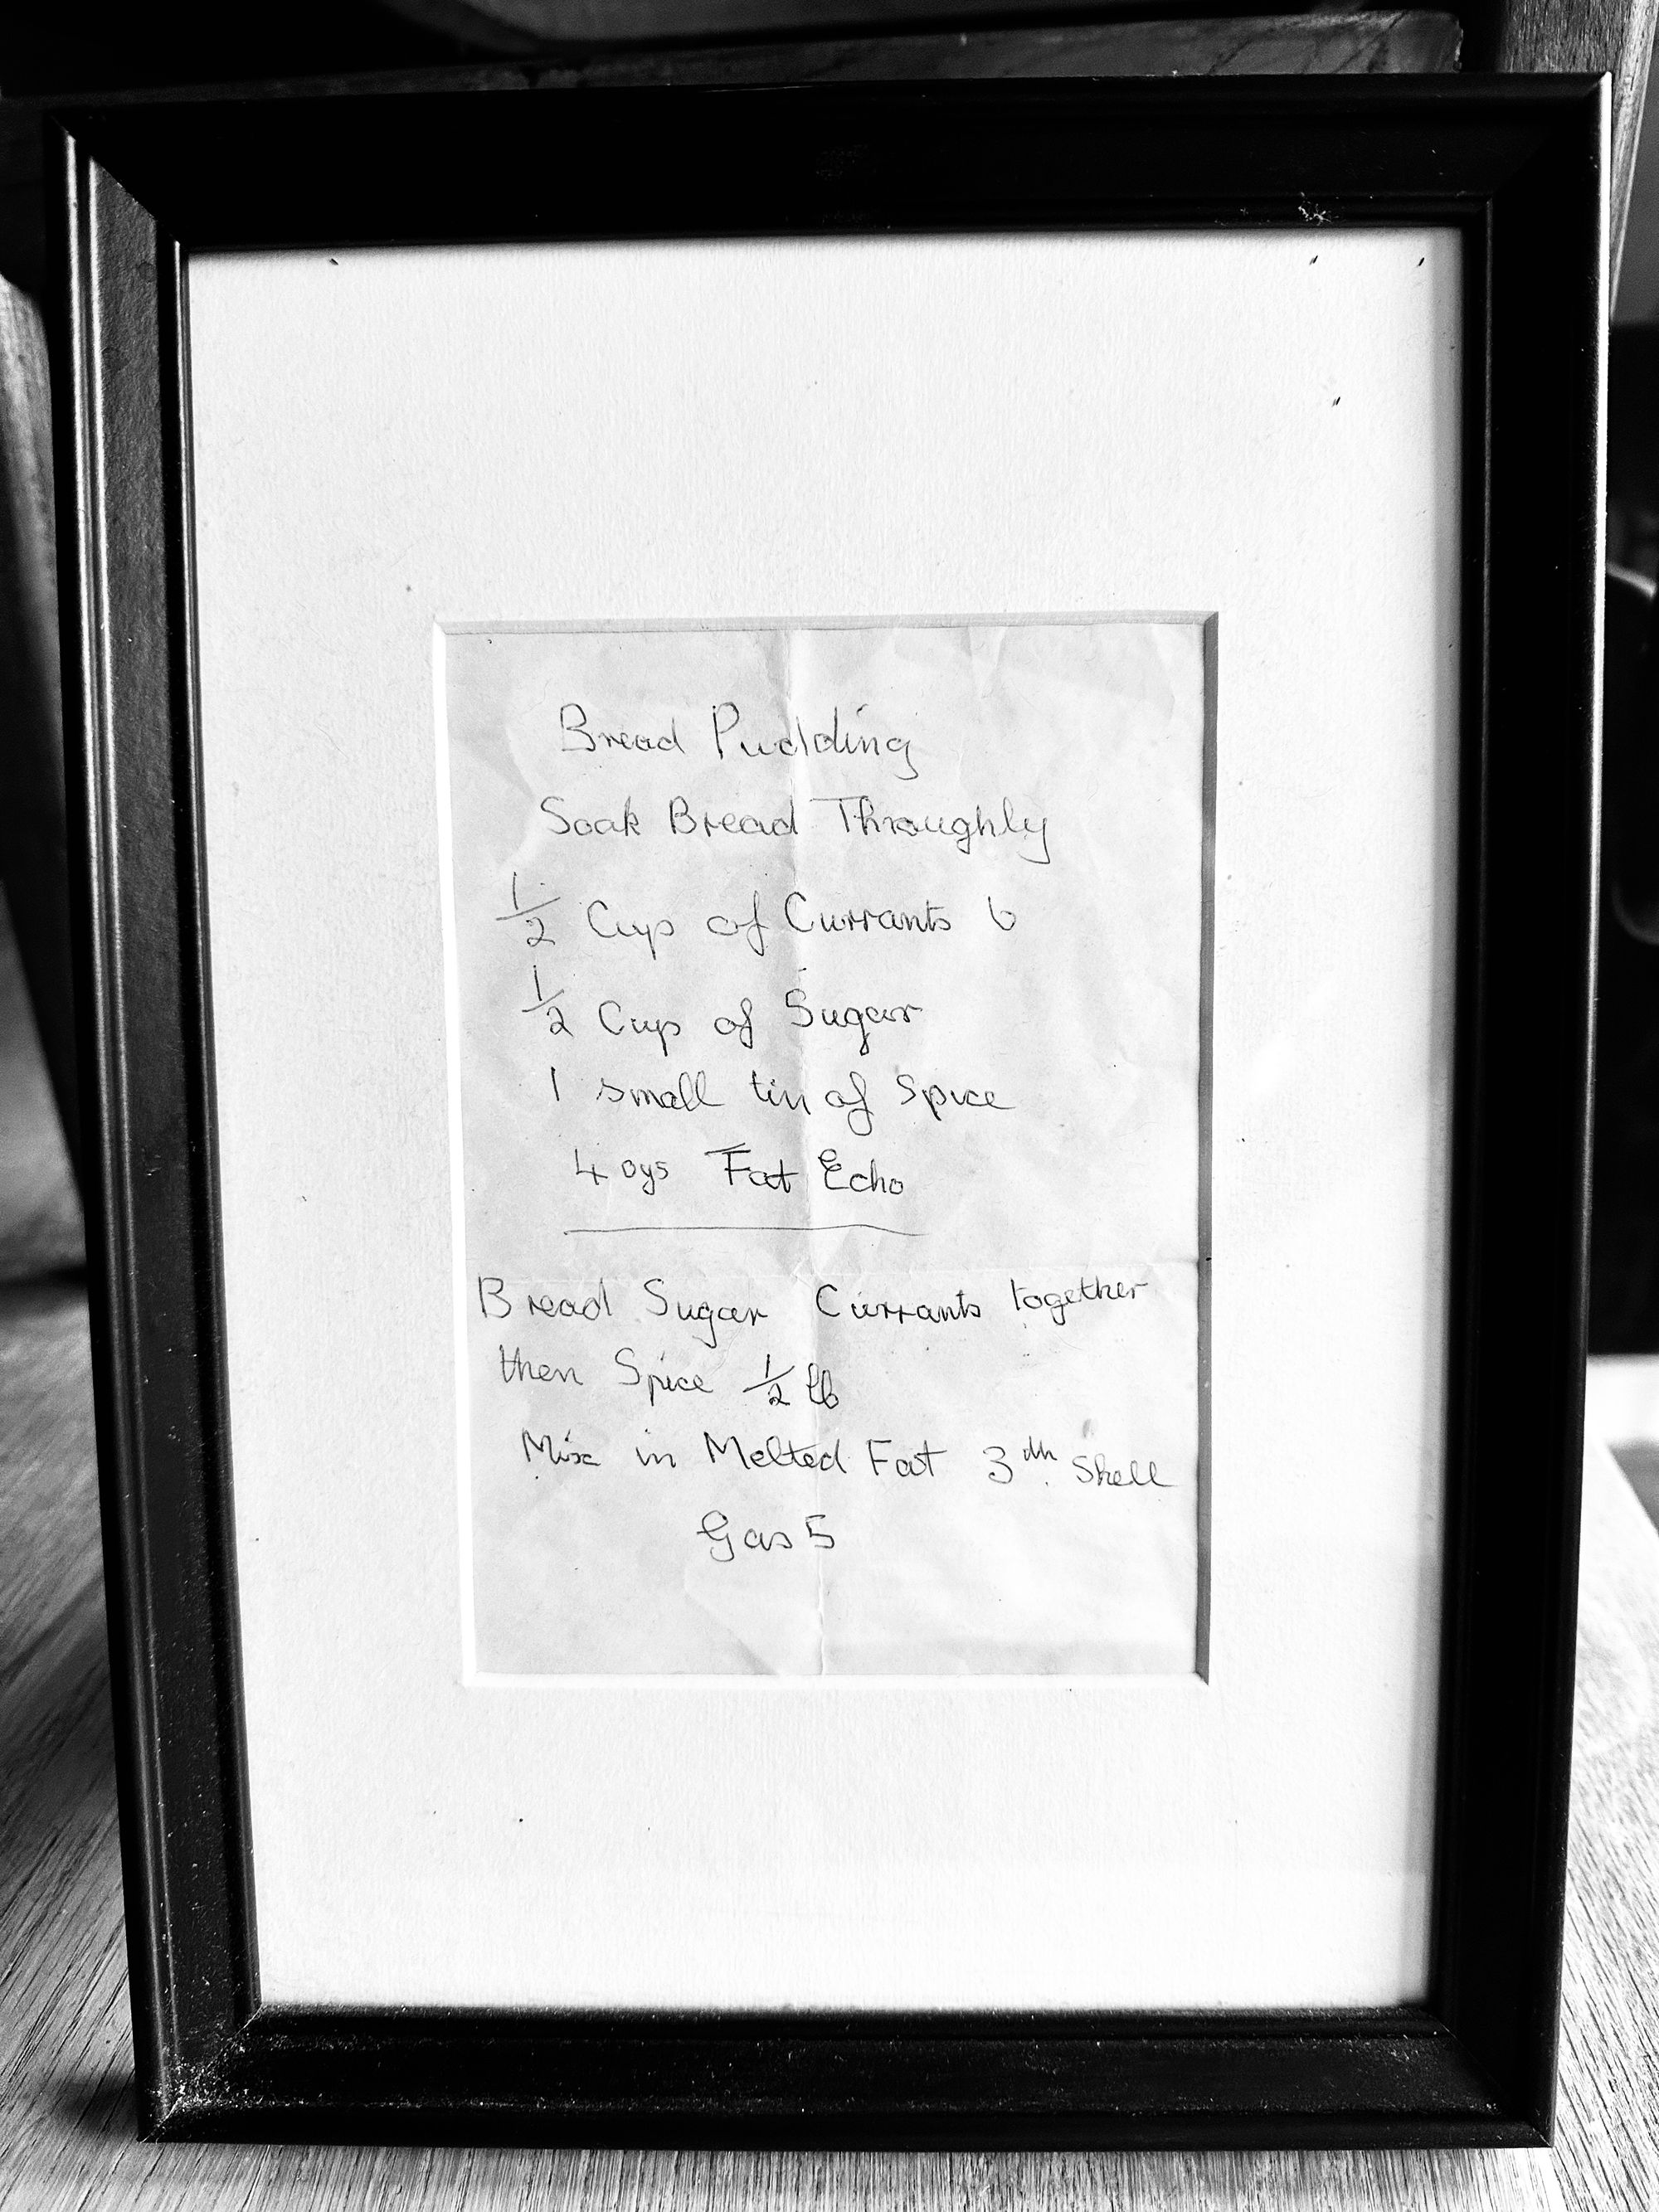 Bread Pudding
Soak Bread Throughly
1/2 Cup of Currants 6
1/2 Cup of Sugar
1 small tin of Spice
4 ozs Fat Echo
Bread Sugar Currants together
then Spice 1/2 lb
Mix in Melted Fat 3 Shell
Gas 5